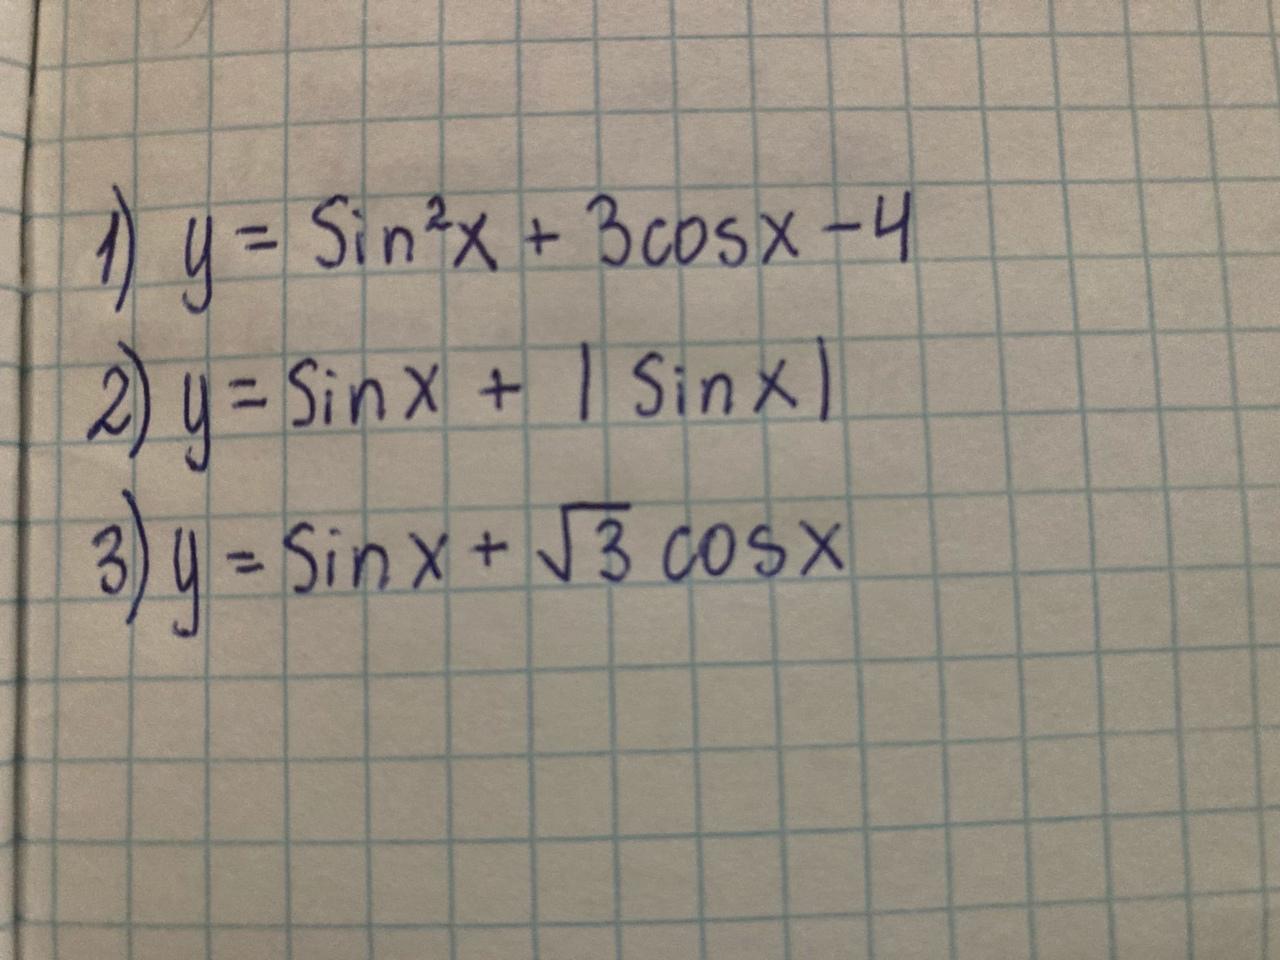 1) y = Sin²x + 3cosx - 4
2) y = Sinx + | Sinx |
3) y = Sinx + √3 cosx